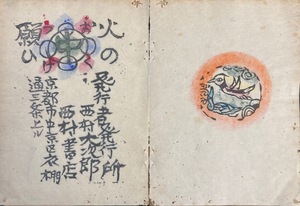 火の
願ひ
発行者発行所
西村大治郎
西村書店
京都市中京区衣棚
通三条上ル